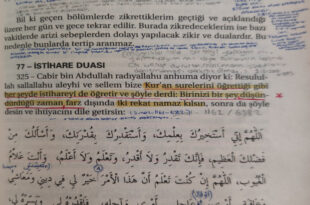 Bil ki geçen bölümlerde zikrettiklerim geçtiği ve açıklandığı
üzere her gün ve gece tekrar edilir. Burada zikredeceklerim ise bazı
vakitlerde arizi sebeplerden dolayı yapılacak zikir ve dualardır. Bu
nedenle bunlarda tertip aranmaz.
77 – İSTİHARE DUASI
325 – Cabir bin Abdullah radıyallahu anhuma diyor ki: Resulul-
lah sallallahu aleyhi ve sellem bize Kur'an surelerini öğrettiği gibi
her şeyde istihareyi de öğretir ve şöyle derdi: Birinizi bir şey
zaman farz dışında iki rekat namaz kılsın, sonra da şöyle
desin ve ihtiyacını dile getirsin:
اللَّهُمَّ إِنِّي أَسْتَخِيرُكَ بِعِلْمِكَ، وَأَسْتَقْدِرُكَ بِقُدْرَتِكَ، وَأَسْأَلُكَ مِنْ
فَضْلِكَ الْعَظِيمِ، فَإِنَّكَ تَقْدِرُ وَلَا أَقْدِرُ، وَتَعْلَمُ وَلَا أَعْلَمُ، وَأَنْتَ عَلَّامُ
الْغُيُوبِ، اللَّهُمَّ إِنْ كُنْتَ تَعْلَمُ أَنَّ هَذَا الْأَمْرَ خَيْرٌ لِي فِي دِينِي وَمَعَاشِي